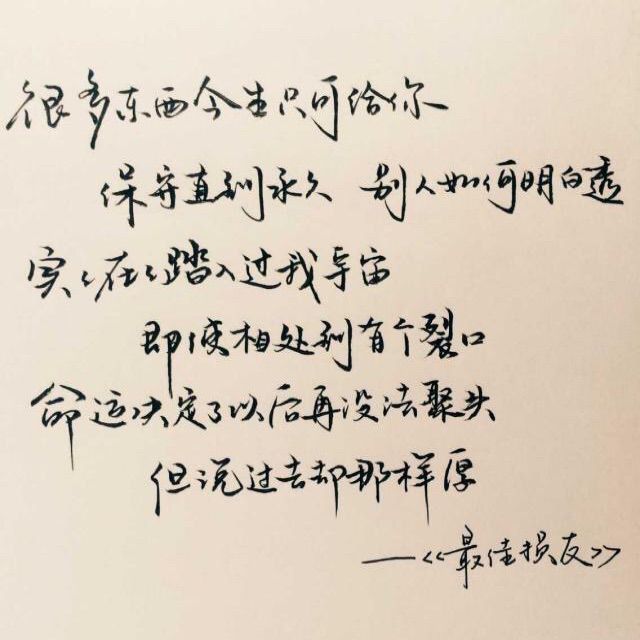 很多东西今生只可给你
保守直到永久 别人如何明白透
实实在在踏入过我宇宙
即使相处到有个裂口
命运决定了以后再没法聚头
但说过去却那样厚
—《最佳损友》